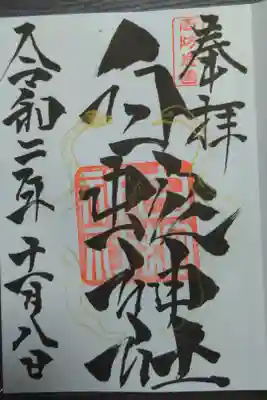 奉拝
白蛇神社
令和二年十一月八日